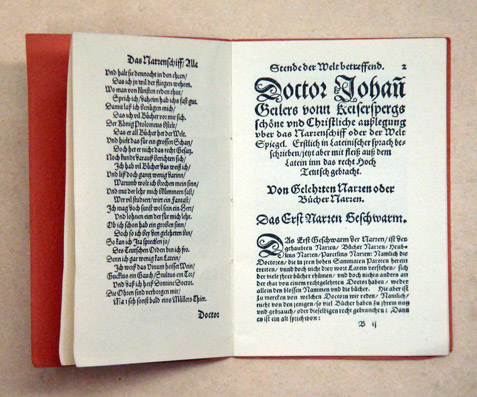 Das Narrenschiff/ Alle
Und halt sie dennocht in den ehren/
Das ich jn wil der fliegen wehren.
Wo man von künsten reden thut/
Sprich ich/ daheim hab ichs fast gut.
Damit laß ich benügen mich/
Das ich vil Bücher vor mir sich.
Der König Ptolomeus
Das er all Bücher het der Welt.
Und hielt das für ein grossen Schatz/
Doch het er nicht das recht Gesatz,
Noch kundt darauß berichten sich/
Ich hab vil Bücher
Und liß doch gantz wenig darinn/
Warumb wolt ich brechen mein sinn/
Und mit der lehr mich bekümmern fast/
Wer vil studiert/ wirt ein Fantast/
Ich mag doch sonst wol sein ein Herr/
Und lohnen eim der für mich lehr.
Ob ich schon hab ein groben sinn/
Doch so ich bey den gelehrten bin/
So kan ich Ita sprechen jo/
Des Teutschen Orden bin ich fro.
Denn ich gar wenig kan Latein/
Ich weiß das Vinum heißet Wein/
Guckus ein Gauch, Stultus ein Tor/
Und daß ich heiß Domine Doctor.
Die Ohren sind verborgen mir/
Man sech sonst bald eins Müllers Thier.
Doctor
Stende der Welt betreffend. 2
Doctor Johañ
Geilers vonn Keiserspergs
schöne und Christliche außlegung
uber das Narrenschiff oder der Welt
Spiegel. Erstlich in Lateinischer sprach be-
schrieben/ jetzt aber mit fleiß auß dem
Latein inn das recht Hoch
Teutsch gebracht.
Von Gelehrten Narren oder
Bücher Narren.
Das Erst Narren Geschwarm.
Das Erst Geschwarm der Narren/ ist von
Bücher Narren/
Narren: Nämlich die
Doctores/ die zu jren hohen Nammen Narren herein
tretten/ unnd doch nicht drey wort Latein verstehen/ sich
der viele jhrer bücher rhümen/ und doch nichts anders an
der that von einem rechtgelehrten Doctor haben/ weder
allein den blossen Nammen und die bücher. Hie aber ist
zu mercken von welchen Doctorn wir reden/ Namlich/
nicht von den jenigen/ so viel Bücher haben zu jhrem nutz
und gebrauch/ oder dieselbigen recht gebrauchen: Dann
es ist ein alt sprichwort:
B ij